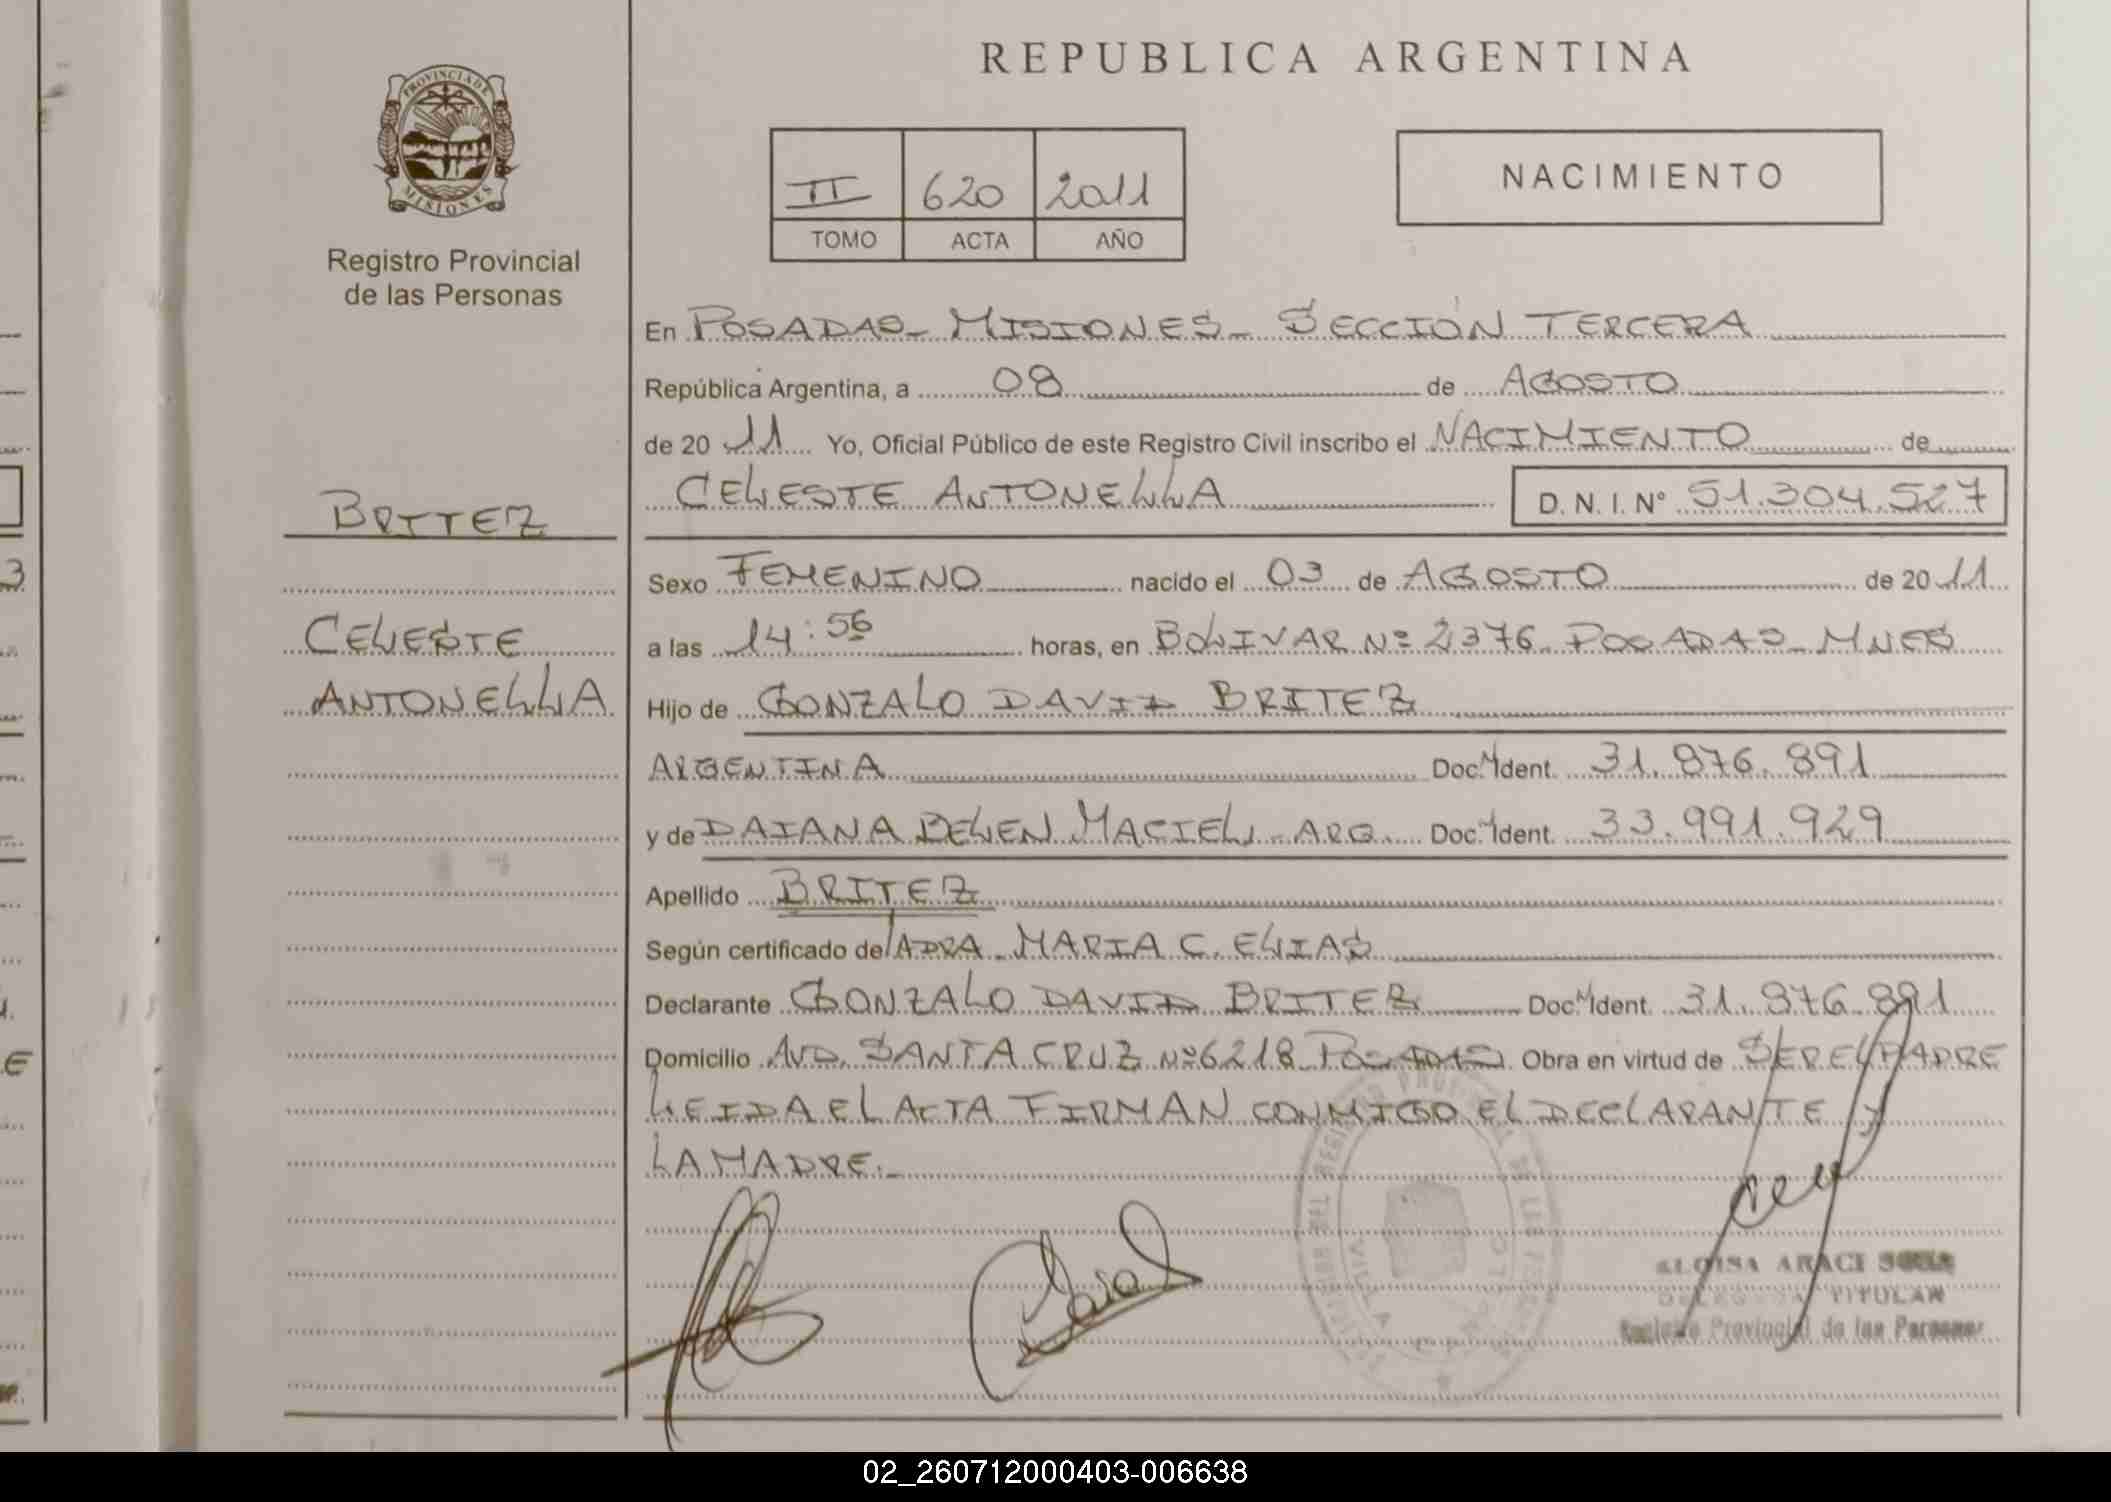 PROVINCIA DE
MISIONES
Registro Provincial
de las Personas
BRITEZ
CELESTE
ANTONELLA
REPUBLICA ARGENTINA
II 620 2011
TOMO ACTA AÑO
NACIMIENTO
En POSADAS - MISIONES - SECCIÓN TERCERA
República Argentina, a 08 de AGOSTO
de 20 11 Yo, Oficial Público de este Registro Civil inscribo el NACIMIENTO de
CELESTE ANTONELLA D. N. I. Nº 51.304.527
Sexo FEMENINO nacido el 03 de AGOSTO de 20 11
a las 14:56 horas, en BOLIVAR Nº 2376 POSADAS - MNES
Hijo de GONZALO DAVID BRITEZ
ARGENTINA Doc. Ident. 31.876.891
y de DAIANA BELEN MACIEL - ARG. Doc. Ident. 33.991.929
Apellido BRITEZ
Según certificado de la DRA. MARIA C. ELIAS
Declarante GONZALO DAVID BRITEZ Doc. Ident. 31.876.891
Domicilio AVD. SANTA CRUZ Nº 6218 POSADAS Obra en virtud de SER EL PADRE
LEIDA EL ACTA FIRMAN CONMIGO EL DECLARANTE Y
LA MADRE. -
ARACI
TITULAR
Registro Provincial de las Personas
02_260712000403-006638